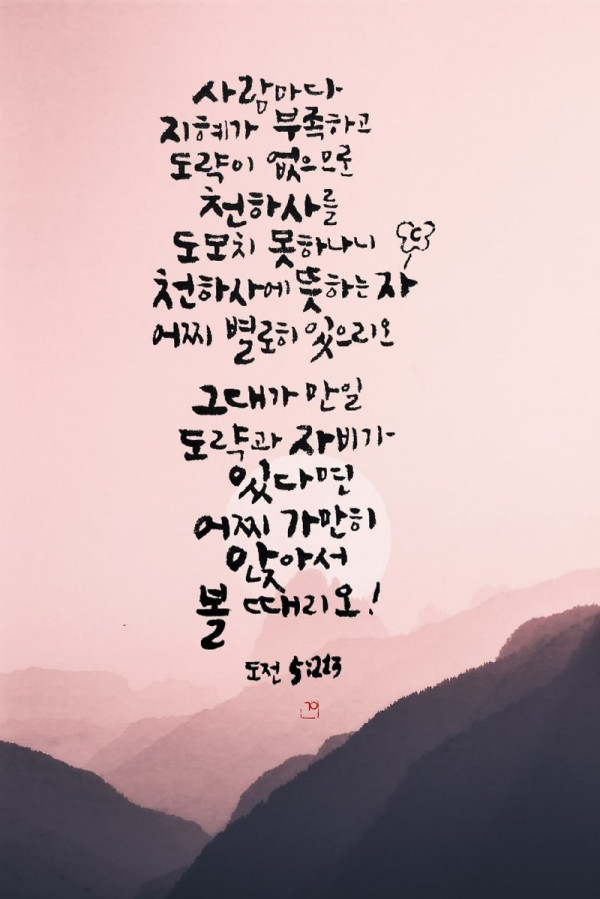 사람마다
지혜가 부족하고
도략이 없으므로
천하사를
도모치 못하나니
천하사에 뜻하는 자
어찌 별로히 있으리오
그대가 만일
도략과 자비가
있다면
어찌 가만히
앉아서
볼 때리오!
도전 5:213